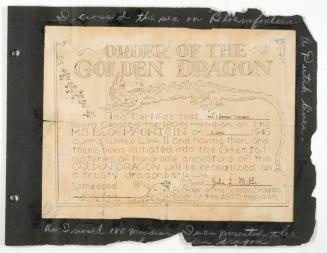 I crossed the sea on Bloemfontein
a Dutch liner.
ORDER OF THE
GOLDEN DRAGON
This Certifies that
having crossed the 180th meridian on the
M.S. BLOEMFONTEIN on 1945
during World War II and having then and
there been initiated into the Oriental
mysteries of honorable ancestors of the
GOLDEN DRAGON will be recognized as
a trusty dragonback.
Witnessed
Signed John L. Mills
Ruler of the 180th meridian
As I crossed 180 meridian I was presented the
dragon